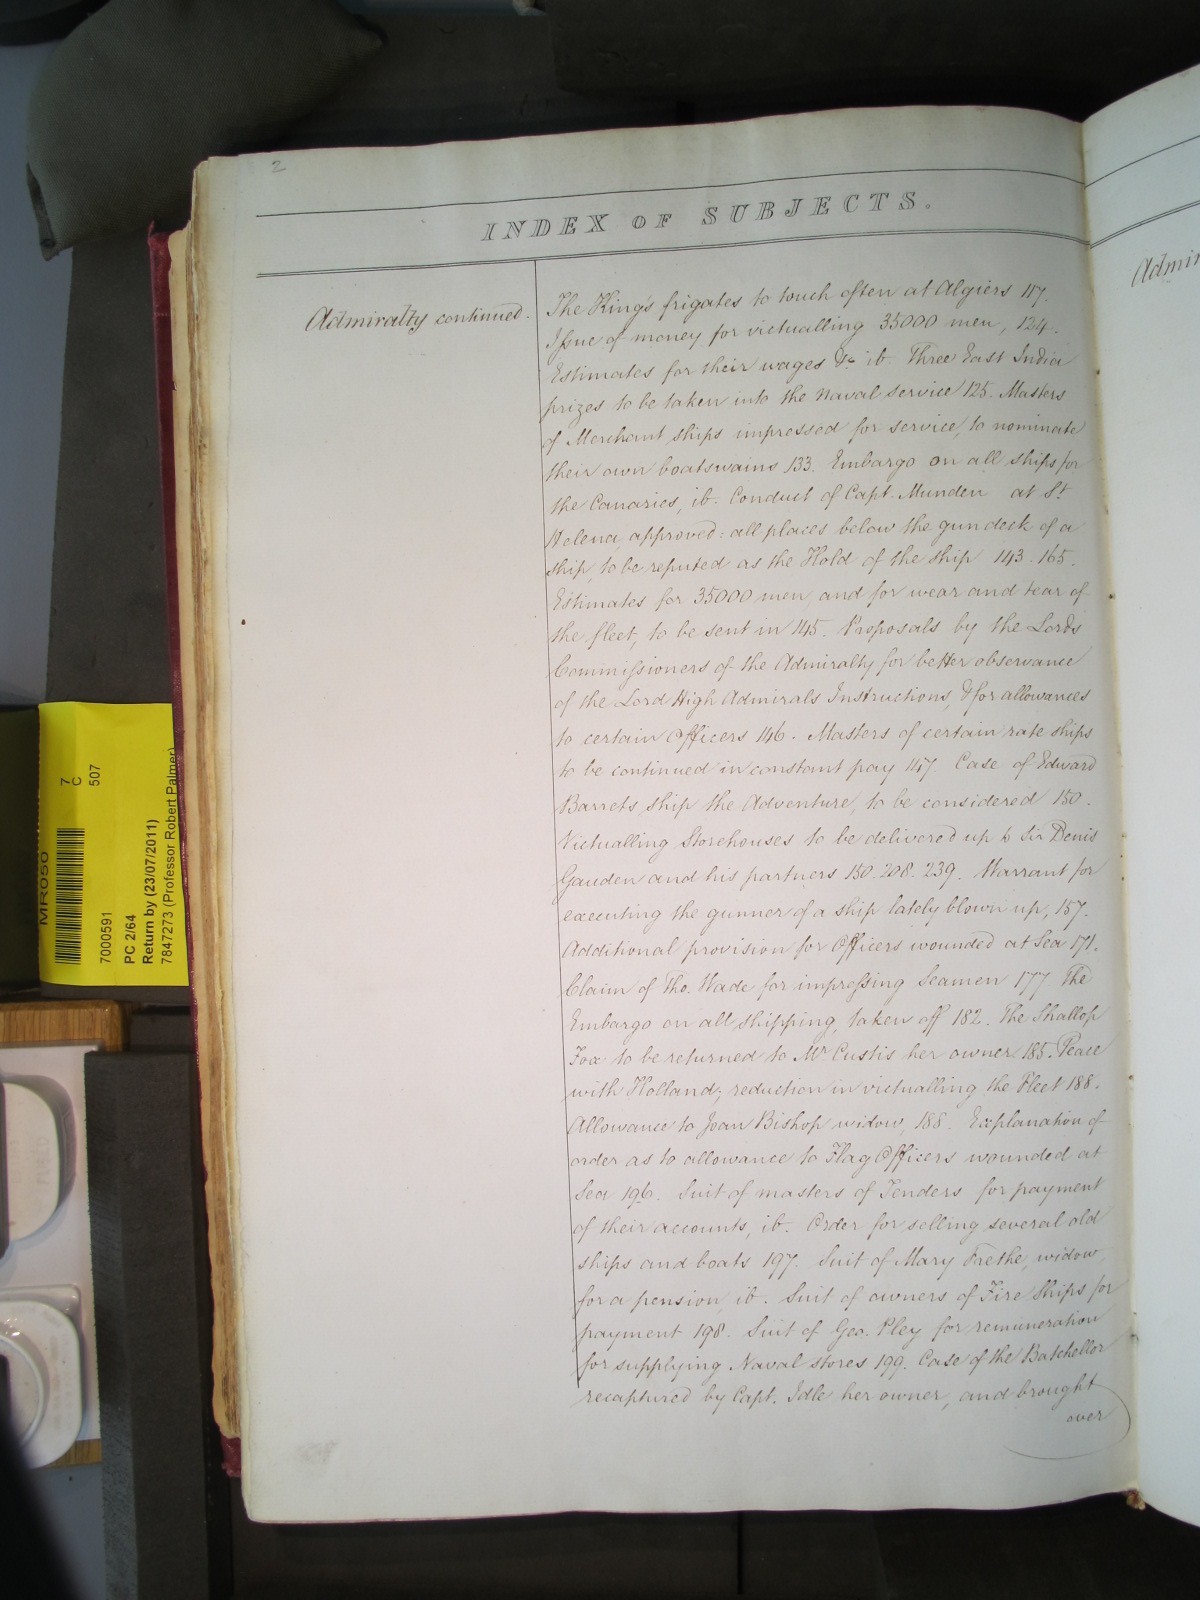 2
INDEX OF SUBJECTS.
Admiralty continued.
The King's frigates to touch often at Algiers 117.
Issue of money for victualling 35000 men, 124.
Estimates for their wages &c ib. Three East India
prizes to be taken into the Naval service 125. Masters
of Merchant ships impressed for service, to nominate
their own boatswains 133. Embargo on all ships for
the Canaries, ib. Conduct of Capt. Munden at St
Helena approved: all places below the gun deck of a
ship, to be reputed as the Hold of the ship 143. 165.
Estimates for 35000 men, and for wear and tear of
the fleet, to be sent in 145. Proposals by the Lords
Commissioners of the Admiralty for better observance
of the Lord High Admirals Instructions, & for allowances
to certain Officers 146. Masters of certain rate ships
to be continued in constant pay 147. Case of Edward
Barrets ship the Adventure, to be considered 150.
Victualling Storehouses to be delivered up to Sir Denis
Gauden and his partners 150. 208. 239. Warrant for
executing the gunner of a ship lately blown up, 157.
Additional provision for Officers wounded at Sea 171.
Claim of Tho. Wade for impressing Seamen 177. The
Embargo on all shipping, taken off 182. The Shallop
Fox to be returned to Mr Custis her owner 185. Peace
with Holland; reduction in victualling the Fleet 188.
Allowance to Jean Bishop widow, 188. Explanation of
order as to allowance to Flag Officers wounded at
Sea 196. Suit of masters of Tenders for payment
of their accounts, ib. Order for selling several old
ships and boats 197. Suit of Mary Trethe, widow,
for a pension, ib. Suit of owners of Fire Ships for
payment 198. Suit of Geo. Pley for remuneration
for supplying Naval stores 199. Case of the Batchellor
recaptured by Capt. Idle her owner, and brought
over
Admir
MR050
7
C
507
7000591
PC 2/64
Return by (23/07/2011)
7847273 (Professor Robert Palmer)